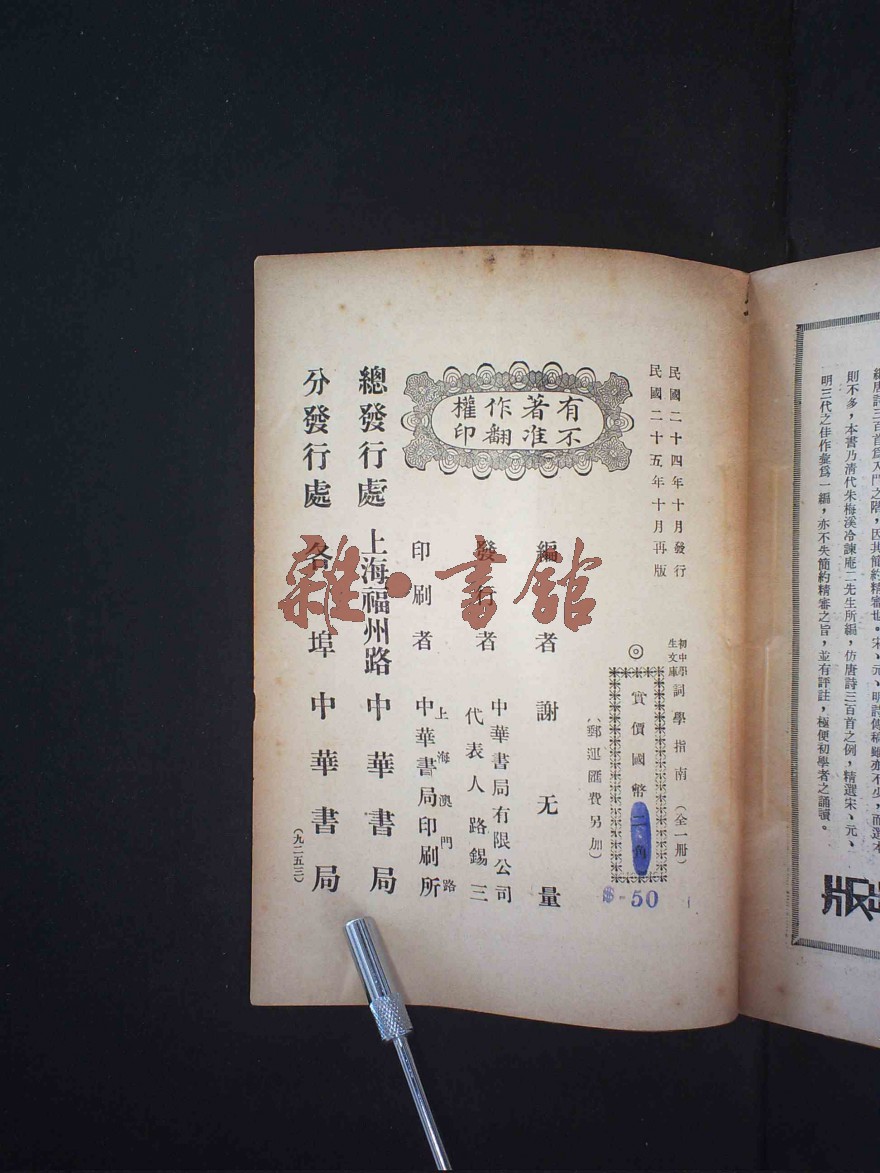 則不多，本書乃清代朱梅溪冷諫庵二先生所編，仿唐詩三百首之例，精選宋、元、
明三代之佳作彙爲一編，亦不失簡約精審之旨，並有評註，極便初學者之誦讀。
民國二十四年十月發行
民國二十五年十月再版
初中學生文庫 詞學指南（全一册）
◎
實價國幣二角
（郵運匯費另加）
$-50
有著作權
不准翻印
編者 謝无量
發行者 中華書局有限公司
代表人路錫三
印刷者 上海澳門路
中華書局印刷所
總發行處 上海福州路 中華書局
分發行處 各埠中華書局
（九二五三）
雜·書館